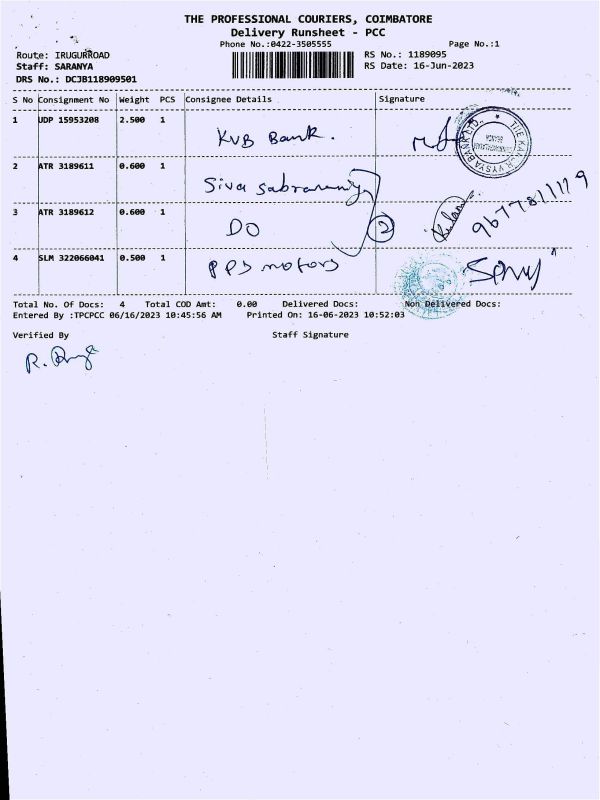 THE PROFESSIONAL COURIERS, COIMBATORE
Delivery Runsheet - PCC
Phone No.:0422-3505555 Page No.:1
Route: IRUGURROAD RS No.: 1189095
Staff: SARANYA RS Date: 16-Jun-2023
DRS No.: DCJB118909501
S No Consignment No Weight PCS Consignee Details Signature
1 UDP 15953208 2.500 1 KVB Bank.
THE KARUR VYSYA BANK LTD.,
2 ATR 3189611 0.600 1 Siva
3 ATR 3189612 0.600 1 DO 2 9677811119
4 SLM 322066041 0.500 1 PPS motors
Total No. Of Docs: 4 Total COD Amt: 0.00 Delivered Docs: Non Delivered Docs:
Entered By :TPCPCC 06/16/2023 10:45:56 AM Printed On: 16-06-2023 10:52:03
Verified By Staff Signature